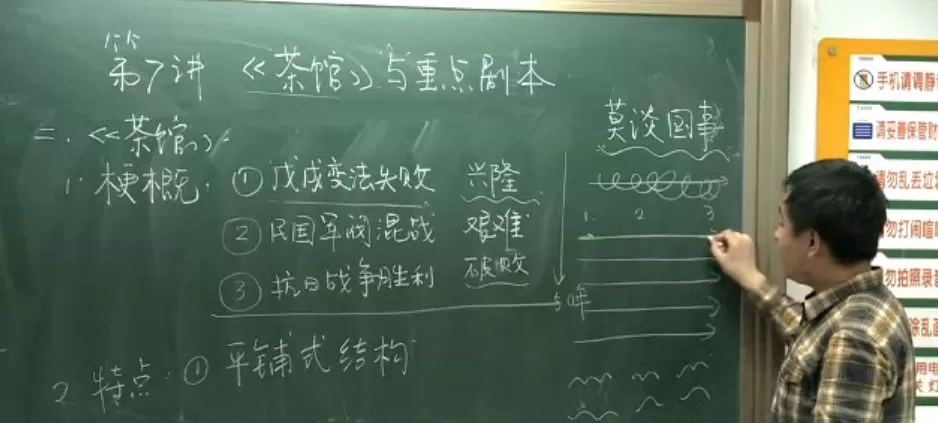 第7讲 《茶馆》与重点剧本
二. 《茶馆》
1. 梗概: ① 戊戌变法失败 兴隆
② 民国军阀混战 艰难
③ 抗日战争胜利 破败
50年
2 特点: ① 平铺式结构
莫谈国事
1. 2 3
手机请调静
请妥善保管财
请勿乱丢垃圾
请勿打闹喧
勿拍照录音
除乱画
用电
关灯